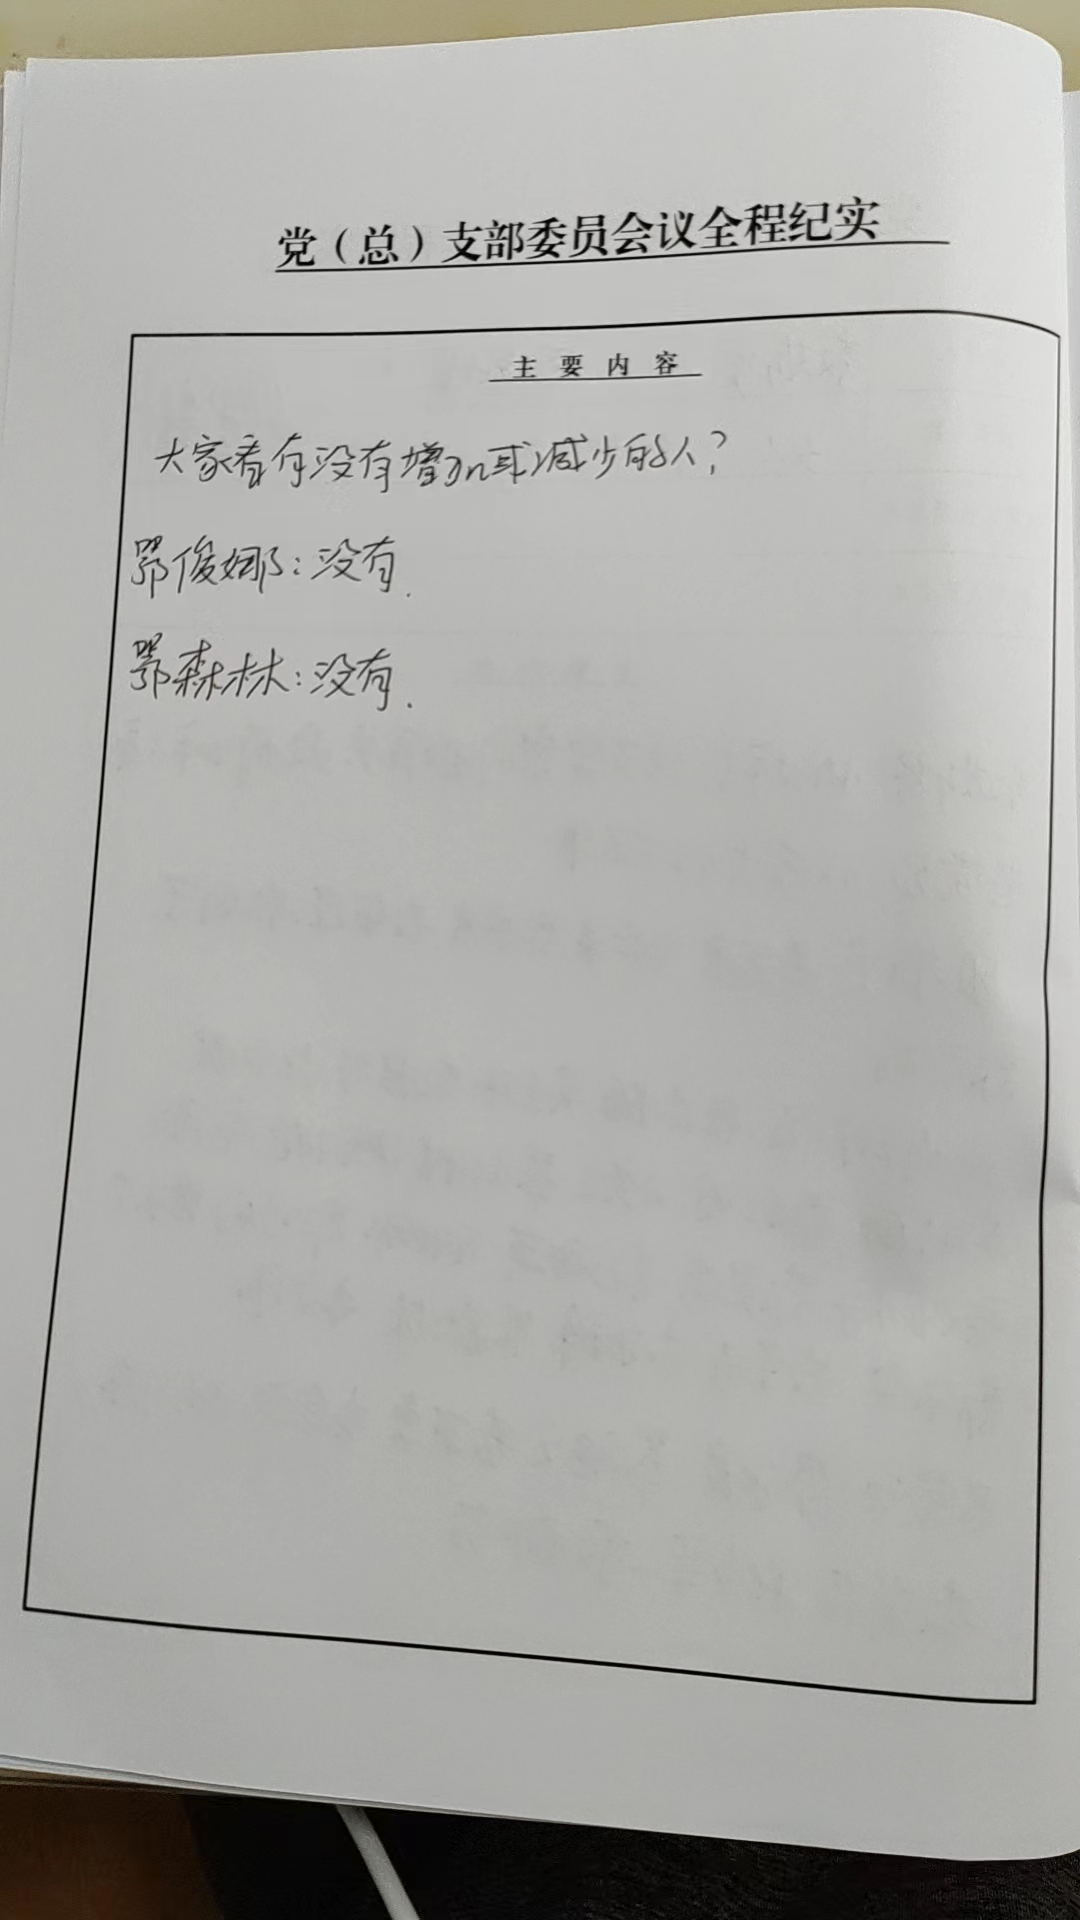 党（总）支部委员会议全程纪实
主要内容
大家看有没有增加或减少的人？
鄂俊娜：没有.
鄂森林：没有.